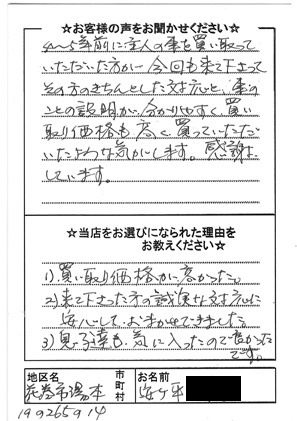 ☆お客様の声をお聞かせください☆
4～5年前に主人の車を買い取って
いただいた方が今回も来て下さって
その方のきちんとした対応と、車の
ことの説明が分かりやすく、買い
取り価格も高く買っていただ
いたような気がします。感謝
しています。
☆当店をお選びになられた理由を
お教えください☆
1)買い取り価格が高かった。
2)来て下さった方の誠実な対応に
安心しておまかせできました
3)息子達も気に入ったので良かった
です。
地区名
花巻市湯本
市
町
村
お名前
19926591４